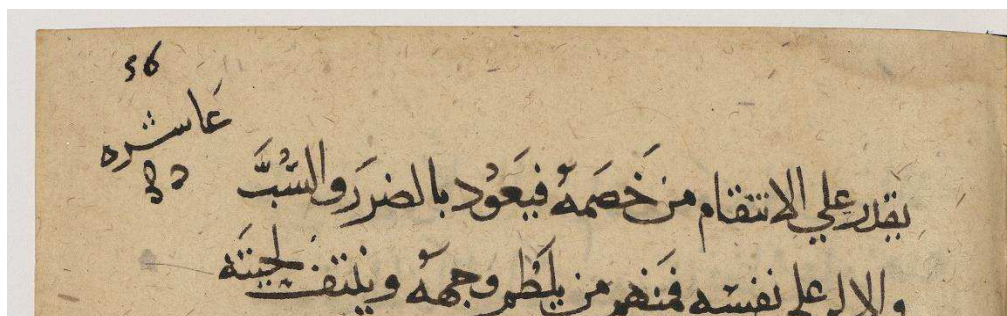 56
عاشره
يقدر علي الانتقام من خَصَمهُ فيَعوُد بالضررَ والسَّبَّ
والالم على نفسه فمنهم من يلطم وجههُ وينتف لحيتَة